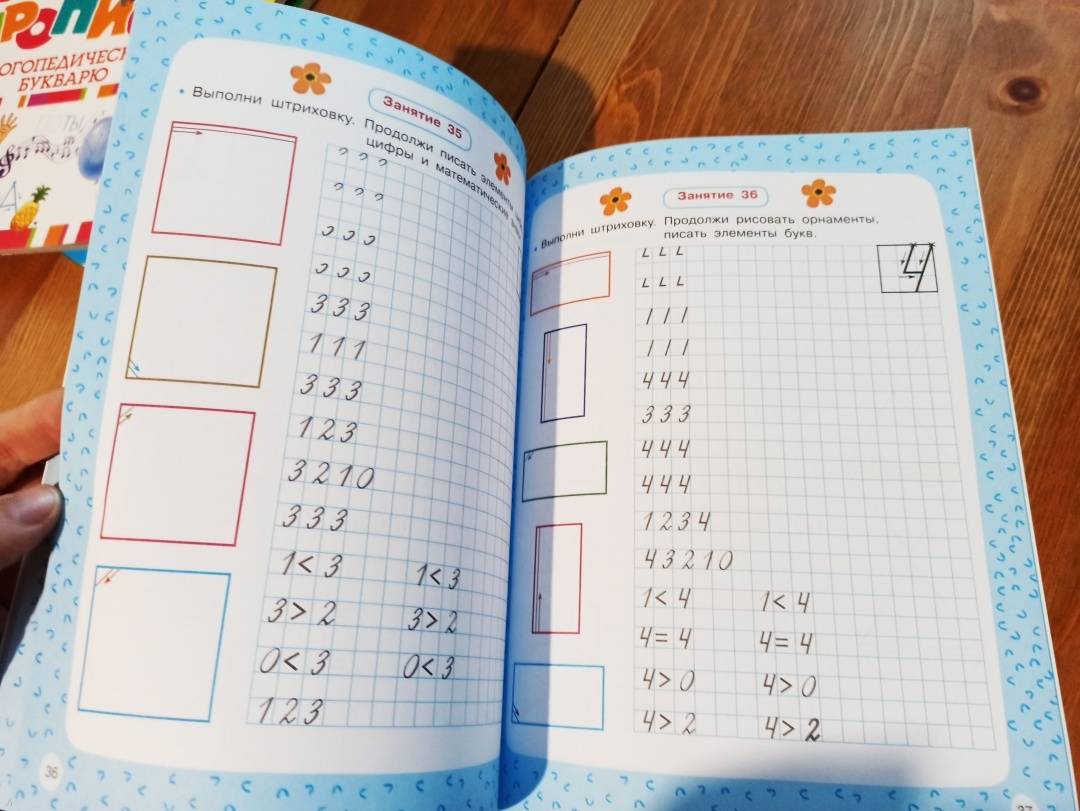 БУКВАРЮ
Занятие 35
• Выполни штриховку. Продолжи писать элементы
цифры и математические
3 3 3
1 1 1
3 3 3
1 2 3
3 2 1 0
3 3 3
1 < 3 1 < 3
3 > 2 3 > 2
0 < 3 0 < 3
1 2 3
36
Занятие 36
• Выполни штриховку. Продолжи рисовать орнаменты,
писать элементы букв.
4
4 4 4
3 3 3
4 4 4
4 4 4
1 2 3 4
4 3 2 1 0
1 < 4 1 < 4
4 = 4 4 = 4
4 > 0 4 > 0
4 > 2 4 > 2